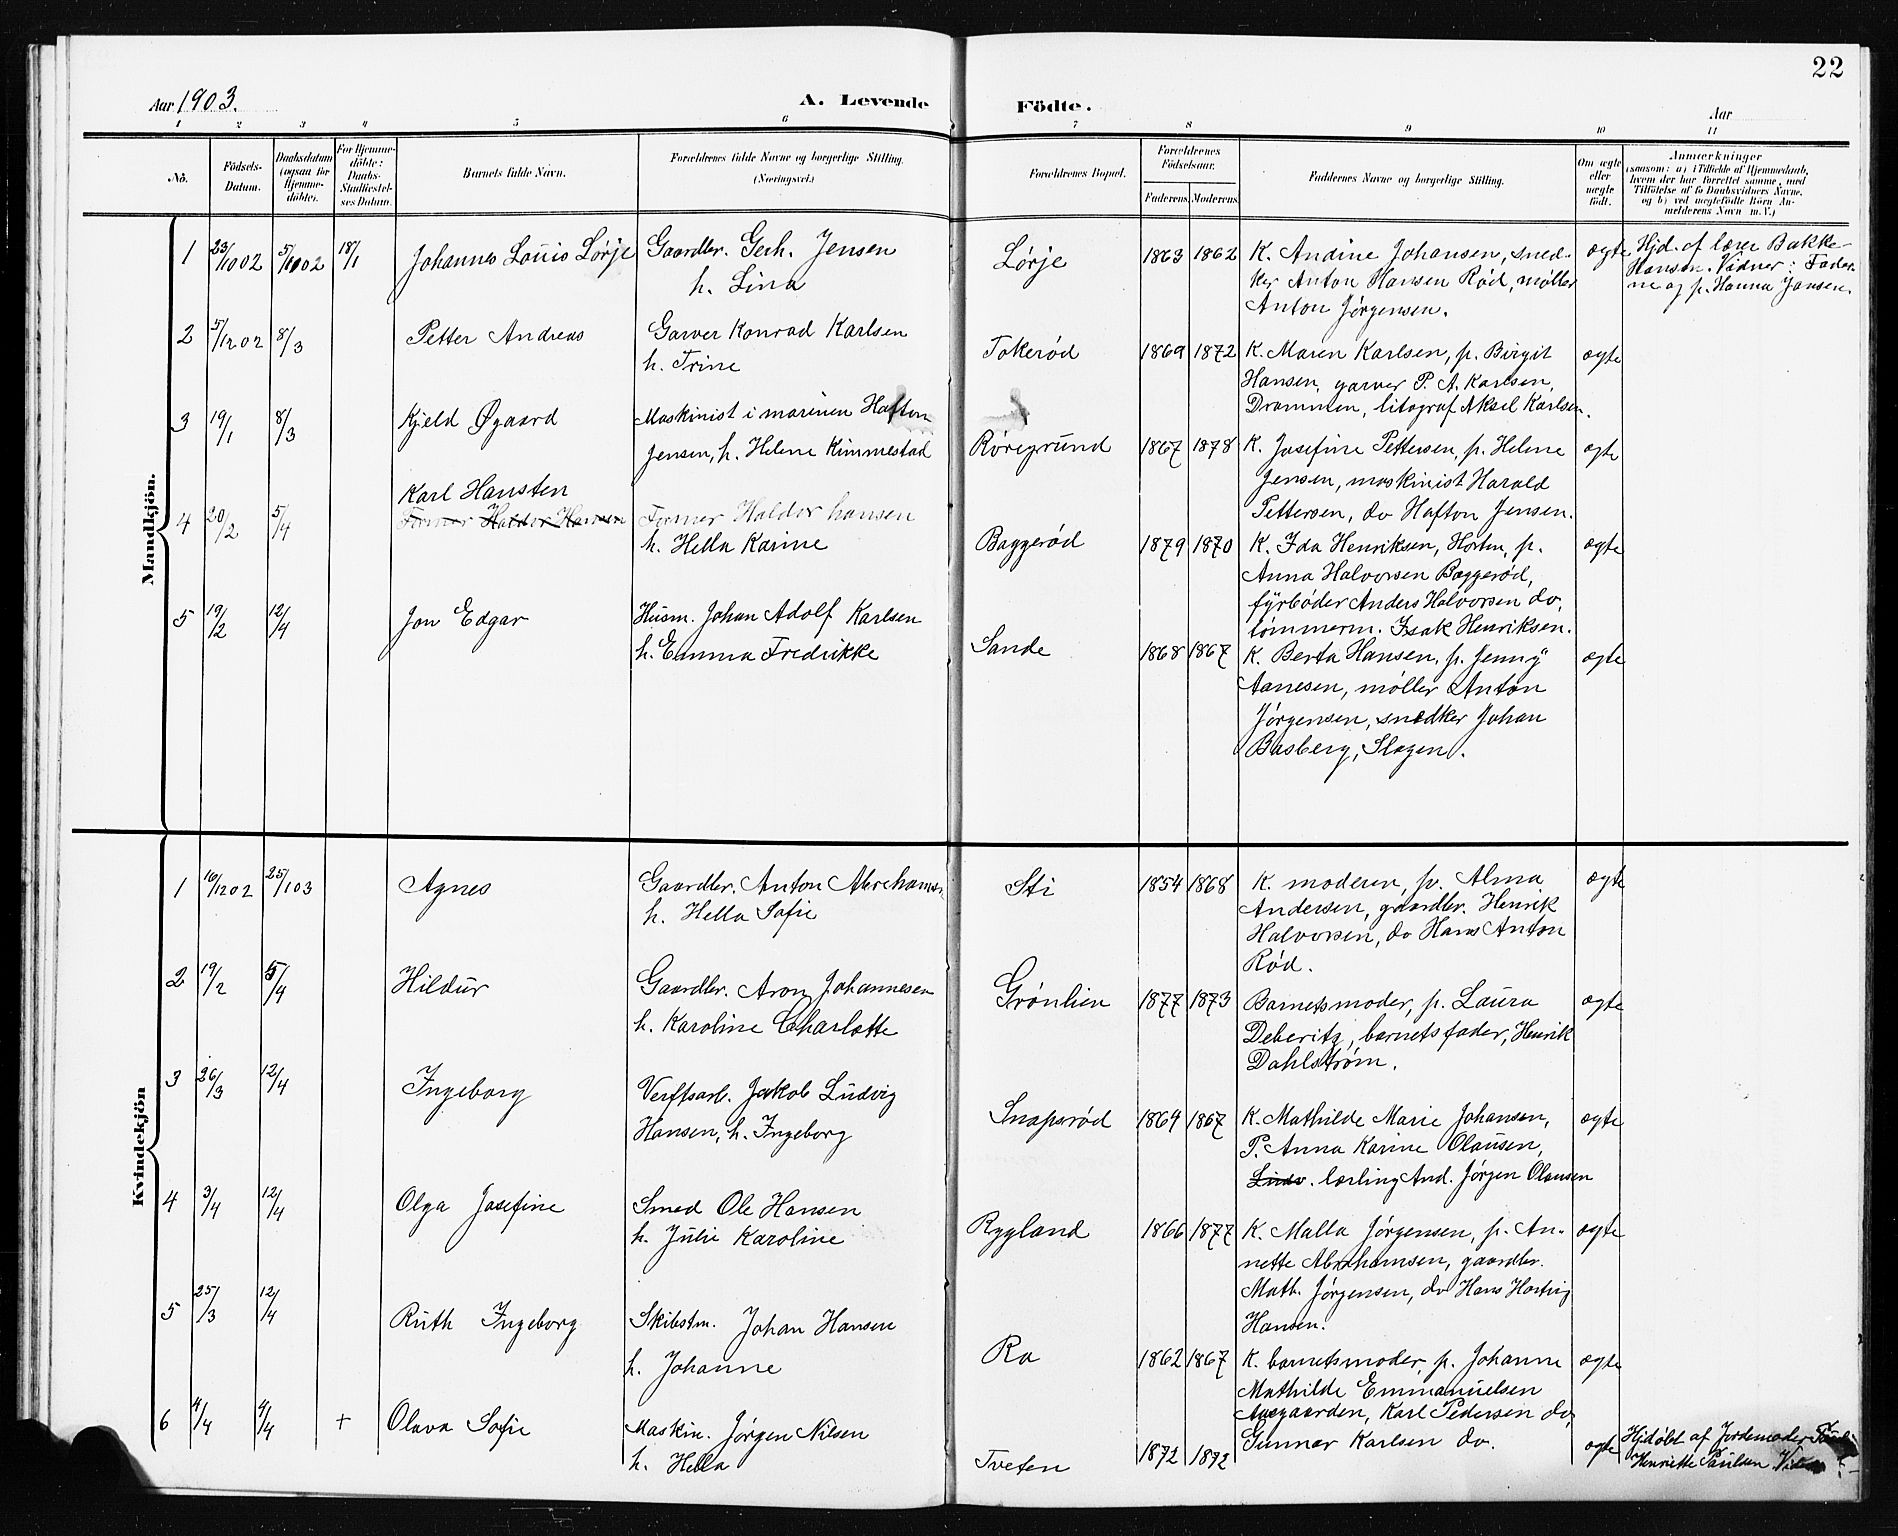 22
Aar 1903.
A. Levende Födte.
Aar
1 2 3 4 5 6 7 8 9 10 11
No.
Födsels-Datum.
Daabsdatum (ogsaa for Hjemmedöbte).
For Hjemmedöbte: Daabs-Stadfæstelses Datum.
Barnets fulde Navn.
Forældrenes fulde Navne og borgerlige Stilling. (Næringsvei.)
Forældrenes Bopæl.
Forældrenes Födselsaar.
Faderens. Moderens.
Faddernes Navne og borgerlige Stilling.
Om ægte eller uægte födt.
Anmærkninger
(saasom: a) i Tilfælde af Hjemmedaab, hvem der har forrettet samme, med Tilföielse af to Daabsvidners Navne, og b) ved uægtefödte Börn Anmelderens Navn m. V.)
Mandkjön.
1 23/10 02 5/11 02 18/1 Johannes Louis Lørje
Gaardbr. Gerh. Jensen
h. Lina
Lørje 1863 1862
K. Andine Johansen, sned-
ker Anton Hansen Rød, møller
Anton Jørgensen.
ægte
Hjd. af lærer Bakke-
Hansen. Vidner: Fader-
ne og p. Hanna Jansen.
2 5/12 02 8/3 Petter Andreas
Garver Konrad Karlsen
h. Trine
Tokerød 1869 1872
K. Maren Karlsen, p. Birgit
Hansen, garver P. A. Karlsen,
Drammen, litograf Aksel Karlsen.
ægte
3 19/1 8/3 Kjeld Øgaard
Maskinist i marinen Hafton
Jensen, h. Helene Kimmestad
Røregrund 1867 1878
K. Josefine Pettersen, p. Helene
Jensen, maskinist Harald
Pettersen, do Hafton Jensen.
ægte
4 20/2 5/4 Karl Hansten
Former Haldor Hansen
Former Haldor hansen
h. Hella Karine
Baggerød 1879 1870
K. Ida Henriksen, Horten, p.
Anna Halvorsen Baggerød,
fyrbøder Anders Halvorsen do,
tømmerm. Isak Henriksen.
ægte
5 19/2 12/4 Jon Edgar
Husm. Johan Adolf Karlsen
h. Emma Fredrikke
Sande 1868 1867
K. Berta Hansen, p. Jenny
Aanesen, møller Anton
Jørgensen, snedker Johan
Basberg, Slagen.
ægte
Kvindekjön
1 16/12 02 25/1 03 Agnes
Gaardbr. Anton Abrahams.
h. Hella Sofie
Sti 1854 1868
K. moderen, p. Alma
Andersen, gaardbr. Henrik
Halvorsen, do Hans Anton
Rød.
ægte
2 19/2 5/4 Hildur
Gaardbr. Aron Johannesen
h. Karoline Charlotte
Grønlien 1877 1873
Barnetsmoder, p. Laura
Deberitz, barnetsfader, Henrik
Dahlstrøm.
ægte
3 26/3 12/4 Ingeborg
Verftsarb. Jakob Ludvig
Hansen, h. Ingeborg
Snapsrød 1869 1867
K. Mathilde Marie Johansen,
P. Anna Karine Olausen,
Ludv. lærling And. Jørgen Olausen
ægte
4 3/4 12/4 Olga Josefine
Smed Ole Hansen
h. Julie Karoline
Rygland 1866 1877
K. Malla Jørgensen, p. An-
nette Abrahamsen, gaardbr.
Math. Jørgensen, do Hans Hartvig
Hansen.
ægte
5 25/3 12/4 Ruth Ingeborg
Skibstm. Johan Hansen
h. Johanne
Ra 1862 1867
K. barnetsmoder, p. Johanne
Mathilde Emmanuelsen
Aasgaarden, Karl Pedersen do,
Gunnar Karlsen do.
ægte
6 4/4 4/4 + Olava Sofie
Maskin. Jørgen Nilsen
h. Hella
Tveten 1872 1872
ægte
Hjdøbt af Jordemoder
Henriette Paulsen